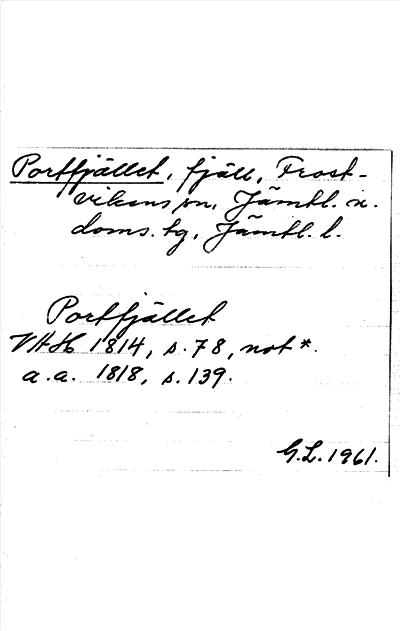 Portfjället, fjäll, Frost-
vikens sn, Jämtl. n.
doms. tg, Jämtl. l.
Portfjället
VAH 1814, s. 78, not *.
a.a. 1818, s. 139.
G.L. 1961.